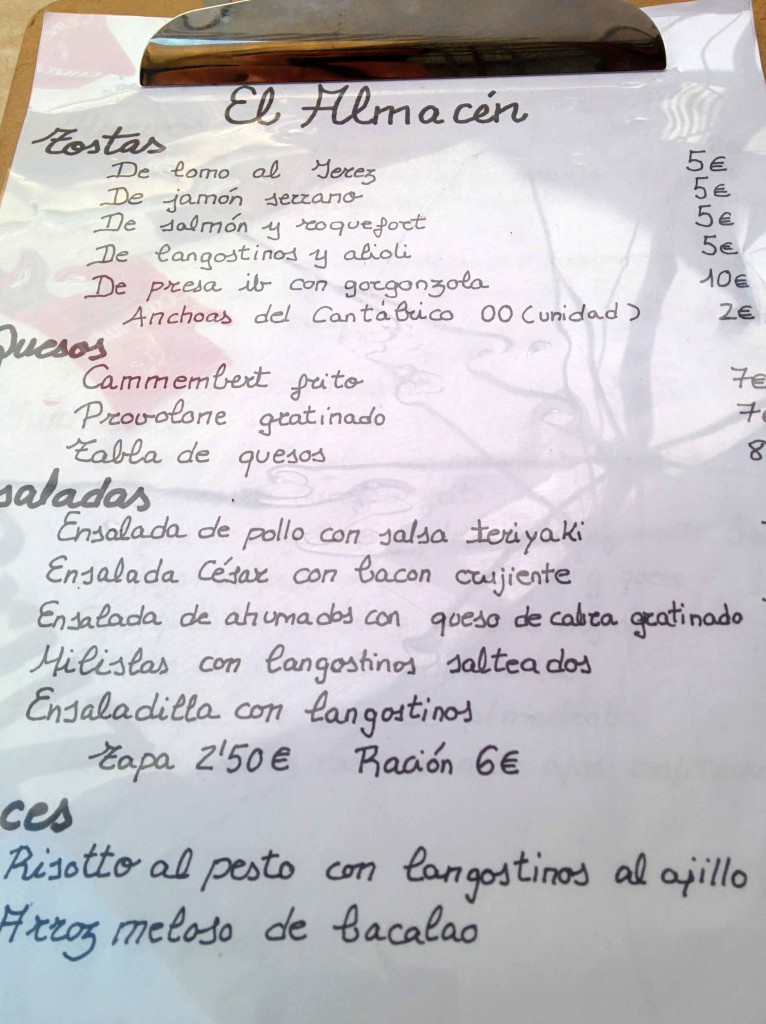 El Almacén
Tostas
De lomo al Jerez 5€
De jamón serrano 5€
De salmón y roquefort 5€
De langostinos y alioli 5€
De presa ib con gorgonzola 10€
Anchoas del Cantábrico 00 (unidad) 2€
Quesos
Cammembert frito 7€
Provolone gratinado 7€
Tabla de quesos 8
saladas
Ensalada de pollo con salsa teriyaki
Ensalada César con bacon crujiente
Ensalada de ahumados con queso de cabra gratinado
Milistas con langostinos salteados
Ensaladilla con langostinos
Tapa 2'50€ Ración 6€
ces
Risotto al pesto con langostinos al ajillo
Arroz meloso de bacalao